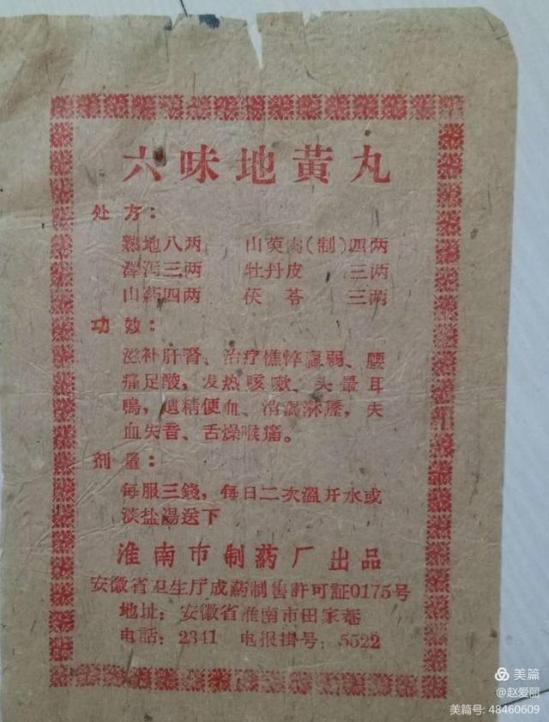 六味地黄丸
处方：
熟地八两 山萸肉(制)四两
泽泻三两 牡丹皮 三两
山药四两 茯苓 三两
功效：
滋补肝腎、治疗憔悴羸弱、腰
痛足酸，发热咳嗽、头晕耳
鳴，遗精便血、消渴淋瀝，失
血失音、舌燥喉痛。
剂量：
每服三錢，每日二次溫开水或
淡盐湯送下
淮南市制药厂出品
安徽省卫生厅成药制售許可証0175号
地址：安徽省淮南市田家菴
电話：2341 电报掛号：5522
美篇
@赵爱囡
美篇号：48460609